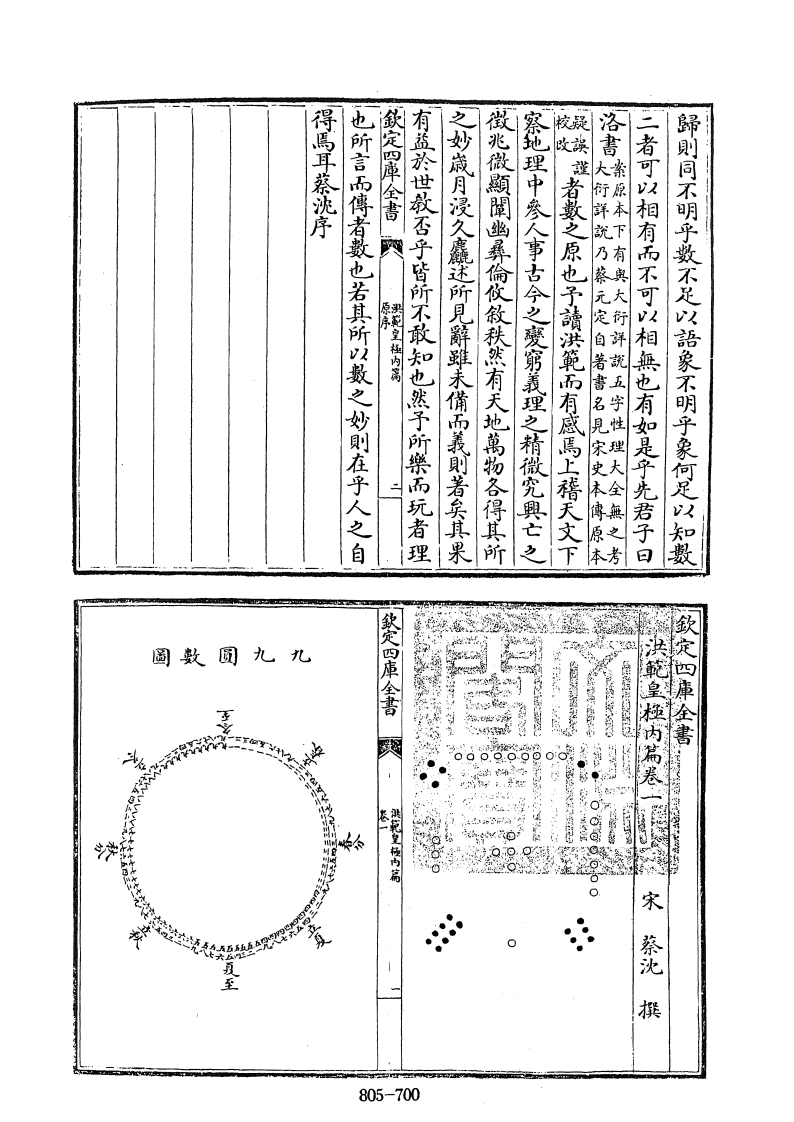 歸則同不明乎數不足以語象不明乎象何足以知數
二者可以相有而不可以相無也有如是乎先君子曰
洛書
案原本下有與大衍詳說五字性理大全無之考
大衍詳說乃蔡元定自著書名見宋史本傳原本
疑誤謹
校改
者數之原也予讀洪範而有感焉上稽天文下
察地理中參人事古今之變窮義理之精微究興亡之
徵兆微顯闡幽彝倫攸敘秩然有天地萬物各得其所
之妙歲月浸久麤述所見辭雖未備而義則著矣其果
有益於世教否乎皆所不敢知也然予所樂而玩者理
欽定四庫全書
洪範皇極內篇
原序
二
也所言而傳者數也若其所以數之妙則在乎人之自
得焉耳蔡沈序
欽定四庫全書
洪範皇極內篇卷一
宋 蔡沈 撰
欽定四庫全書
洪範皇極內篇
卷一
一
九九圓數圖
冬至
立春
春分
立夏
夏至
立秋
秋分
立冬
805-700